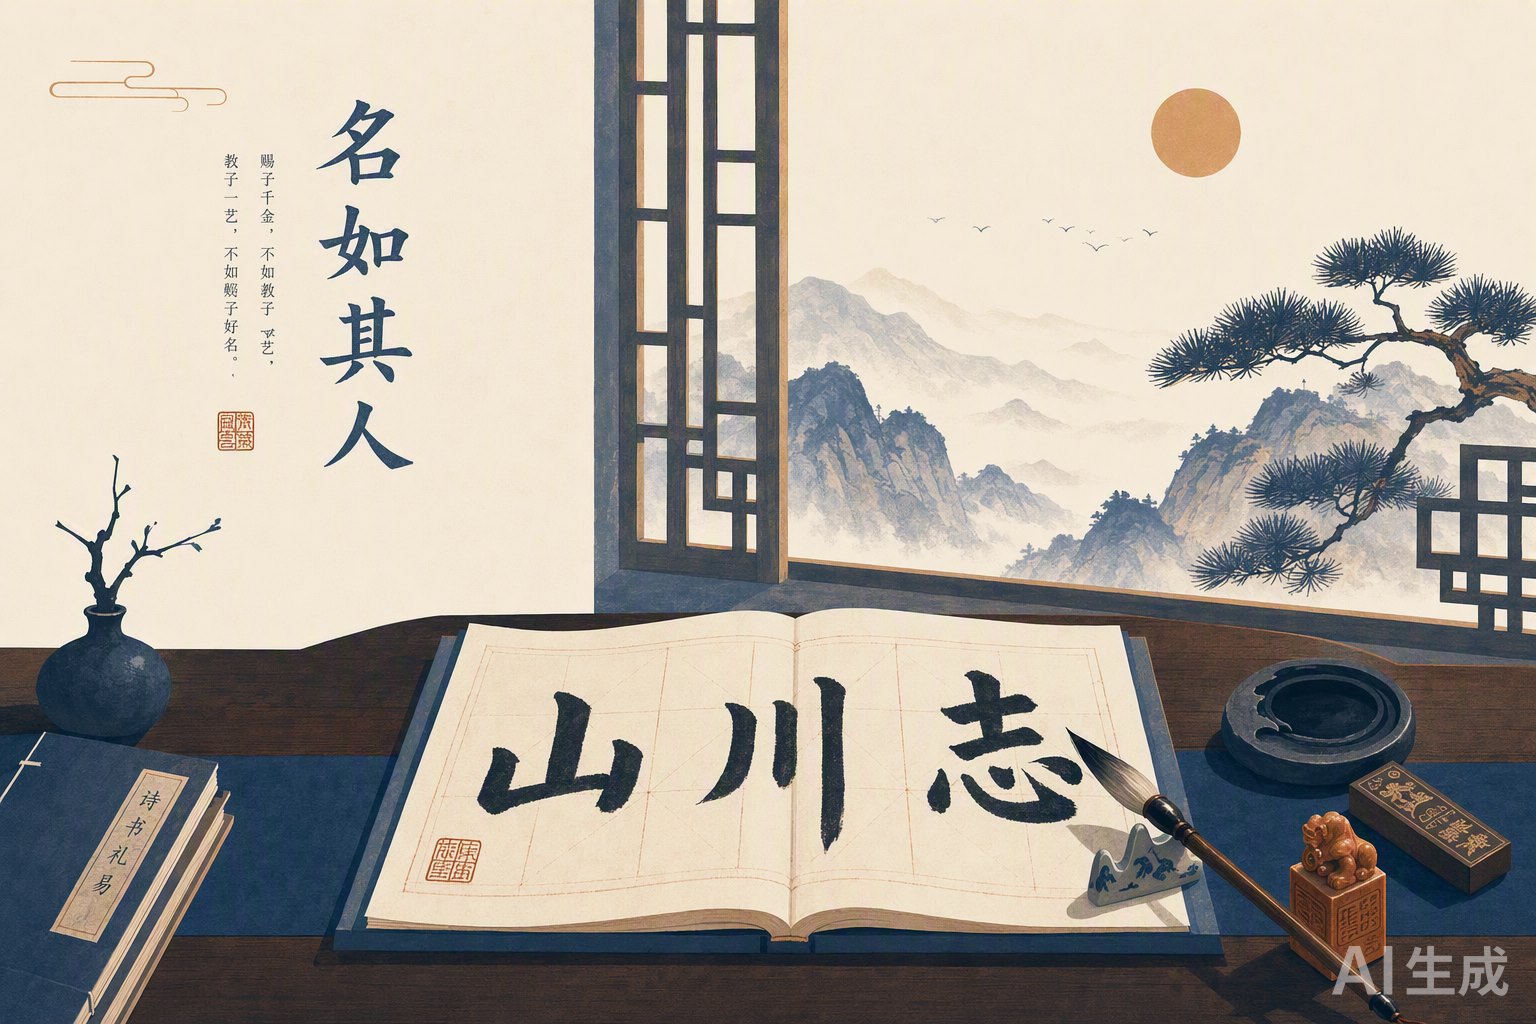 名如其人
赐子千金，不如教子艺，
教子一艺，不如赐子好名。
山川志
诗书礼易
AI生成